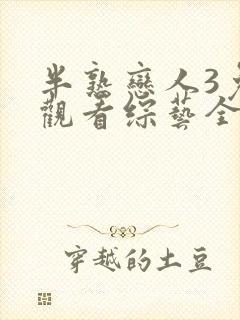 半熟戀人3
觀看綜藝全
穿越的土豆